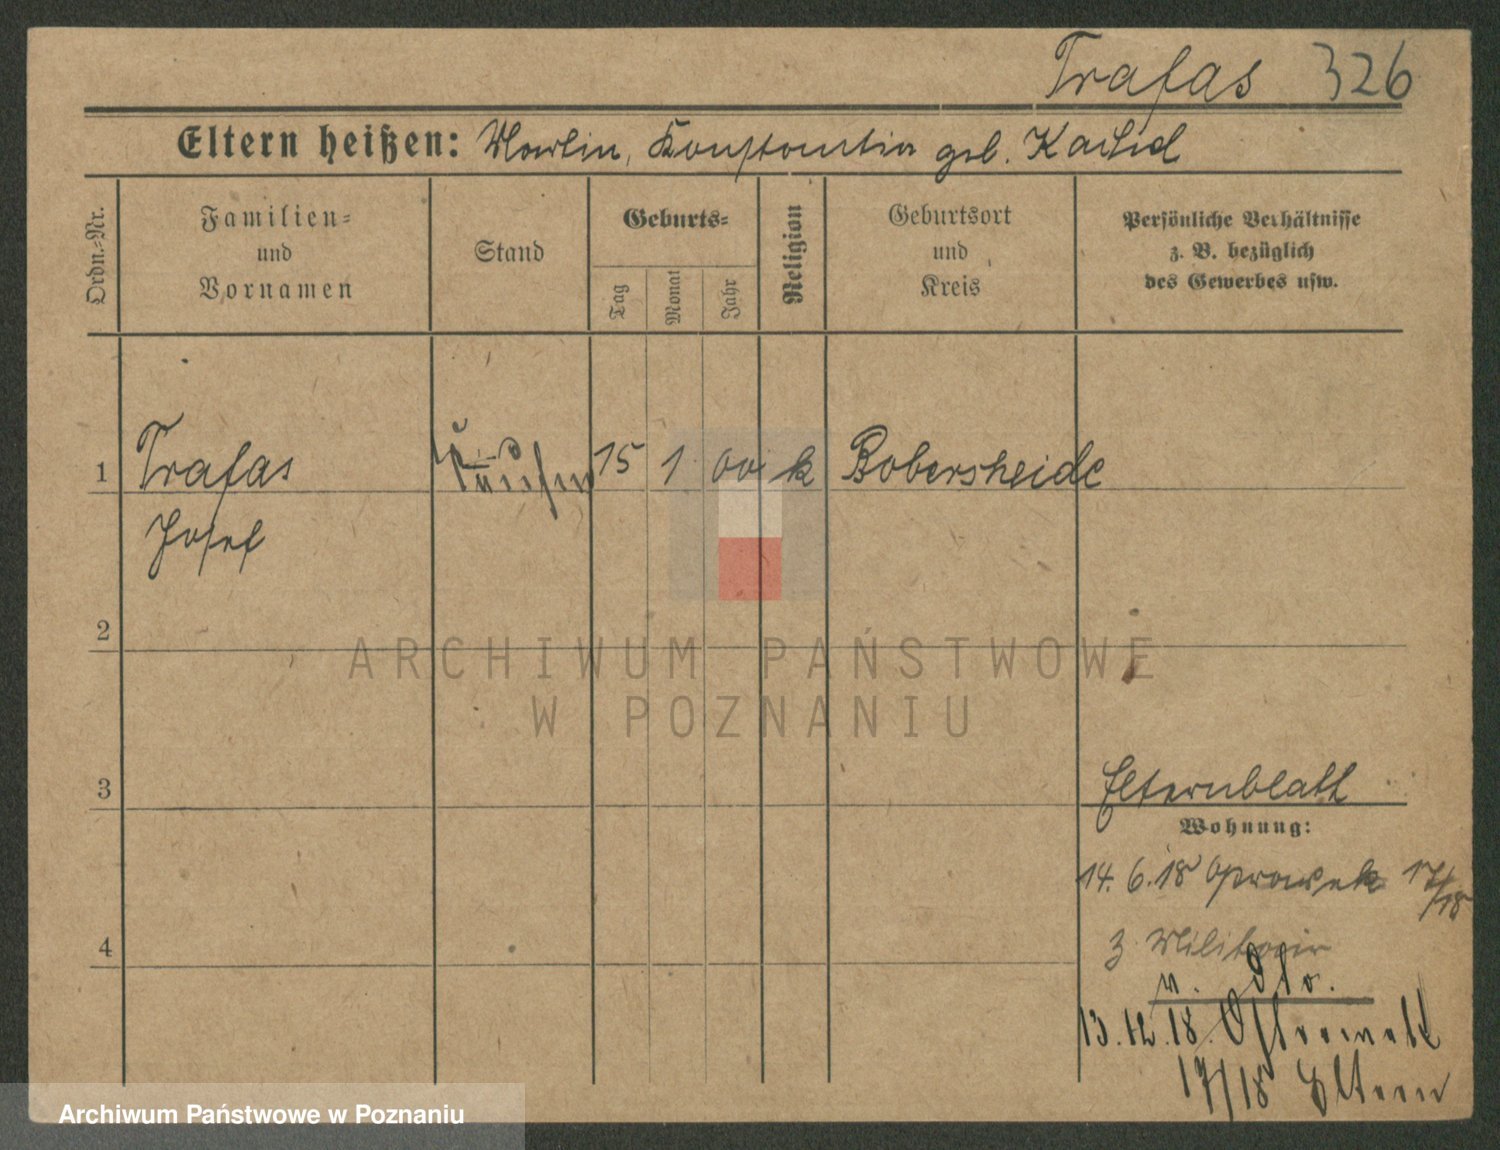 Trafas 326
Eltern heißen: Martin, Konstantia geb.
Ordn.-Nr.
Familien-
und
Vornamen
Stand
Geburts-
Tag
Monat
Jahr
Religion
Geburtsort
und
Kreis
Persönliche Verhältnisse
z. B. bezüglich
des Gewerbes usw.
1 Trafas 15 1 00 k Bobersheide
Josef
2
3 Elternblatt
Wohnung:
14. 6. 18 17/18
4 z Militair
v. dto.
13. 12. 18.
17/18 Eltern
ARCHIWUM PAŃSTWOWE
W POZNANIU
Archiwum Państwowe w Poznaniu